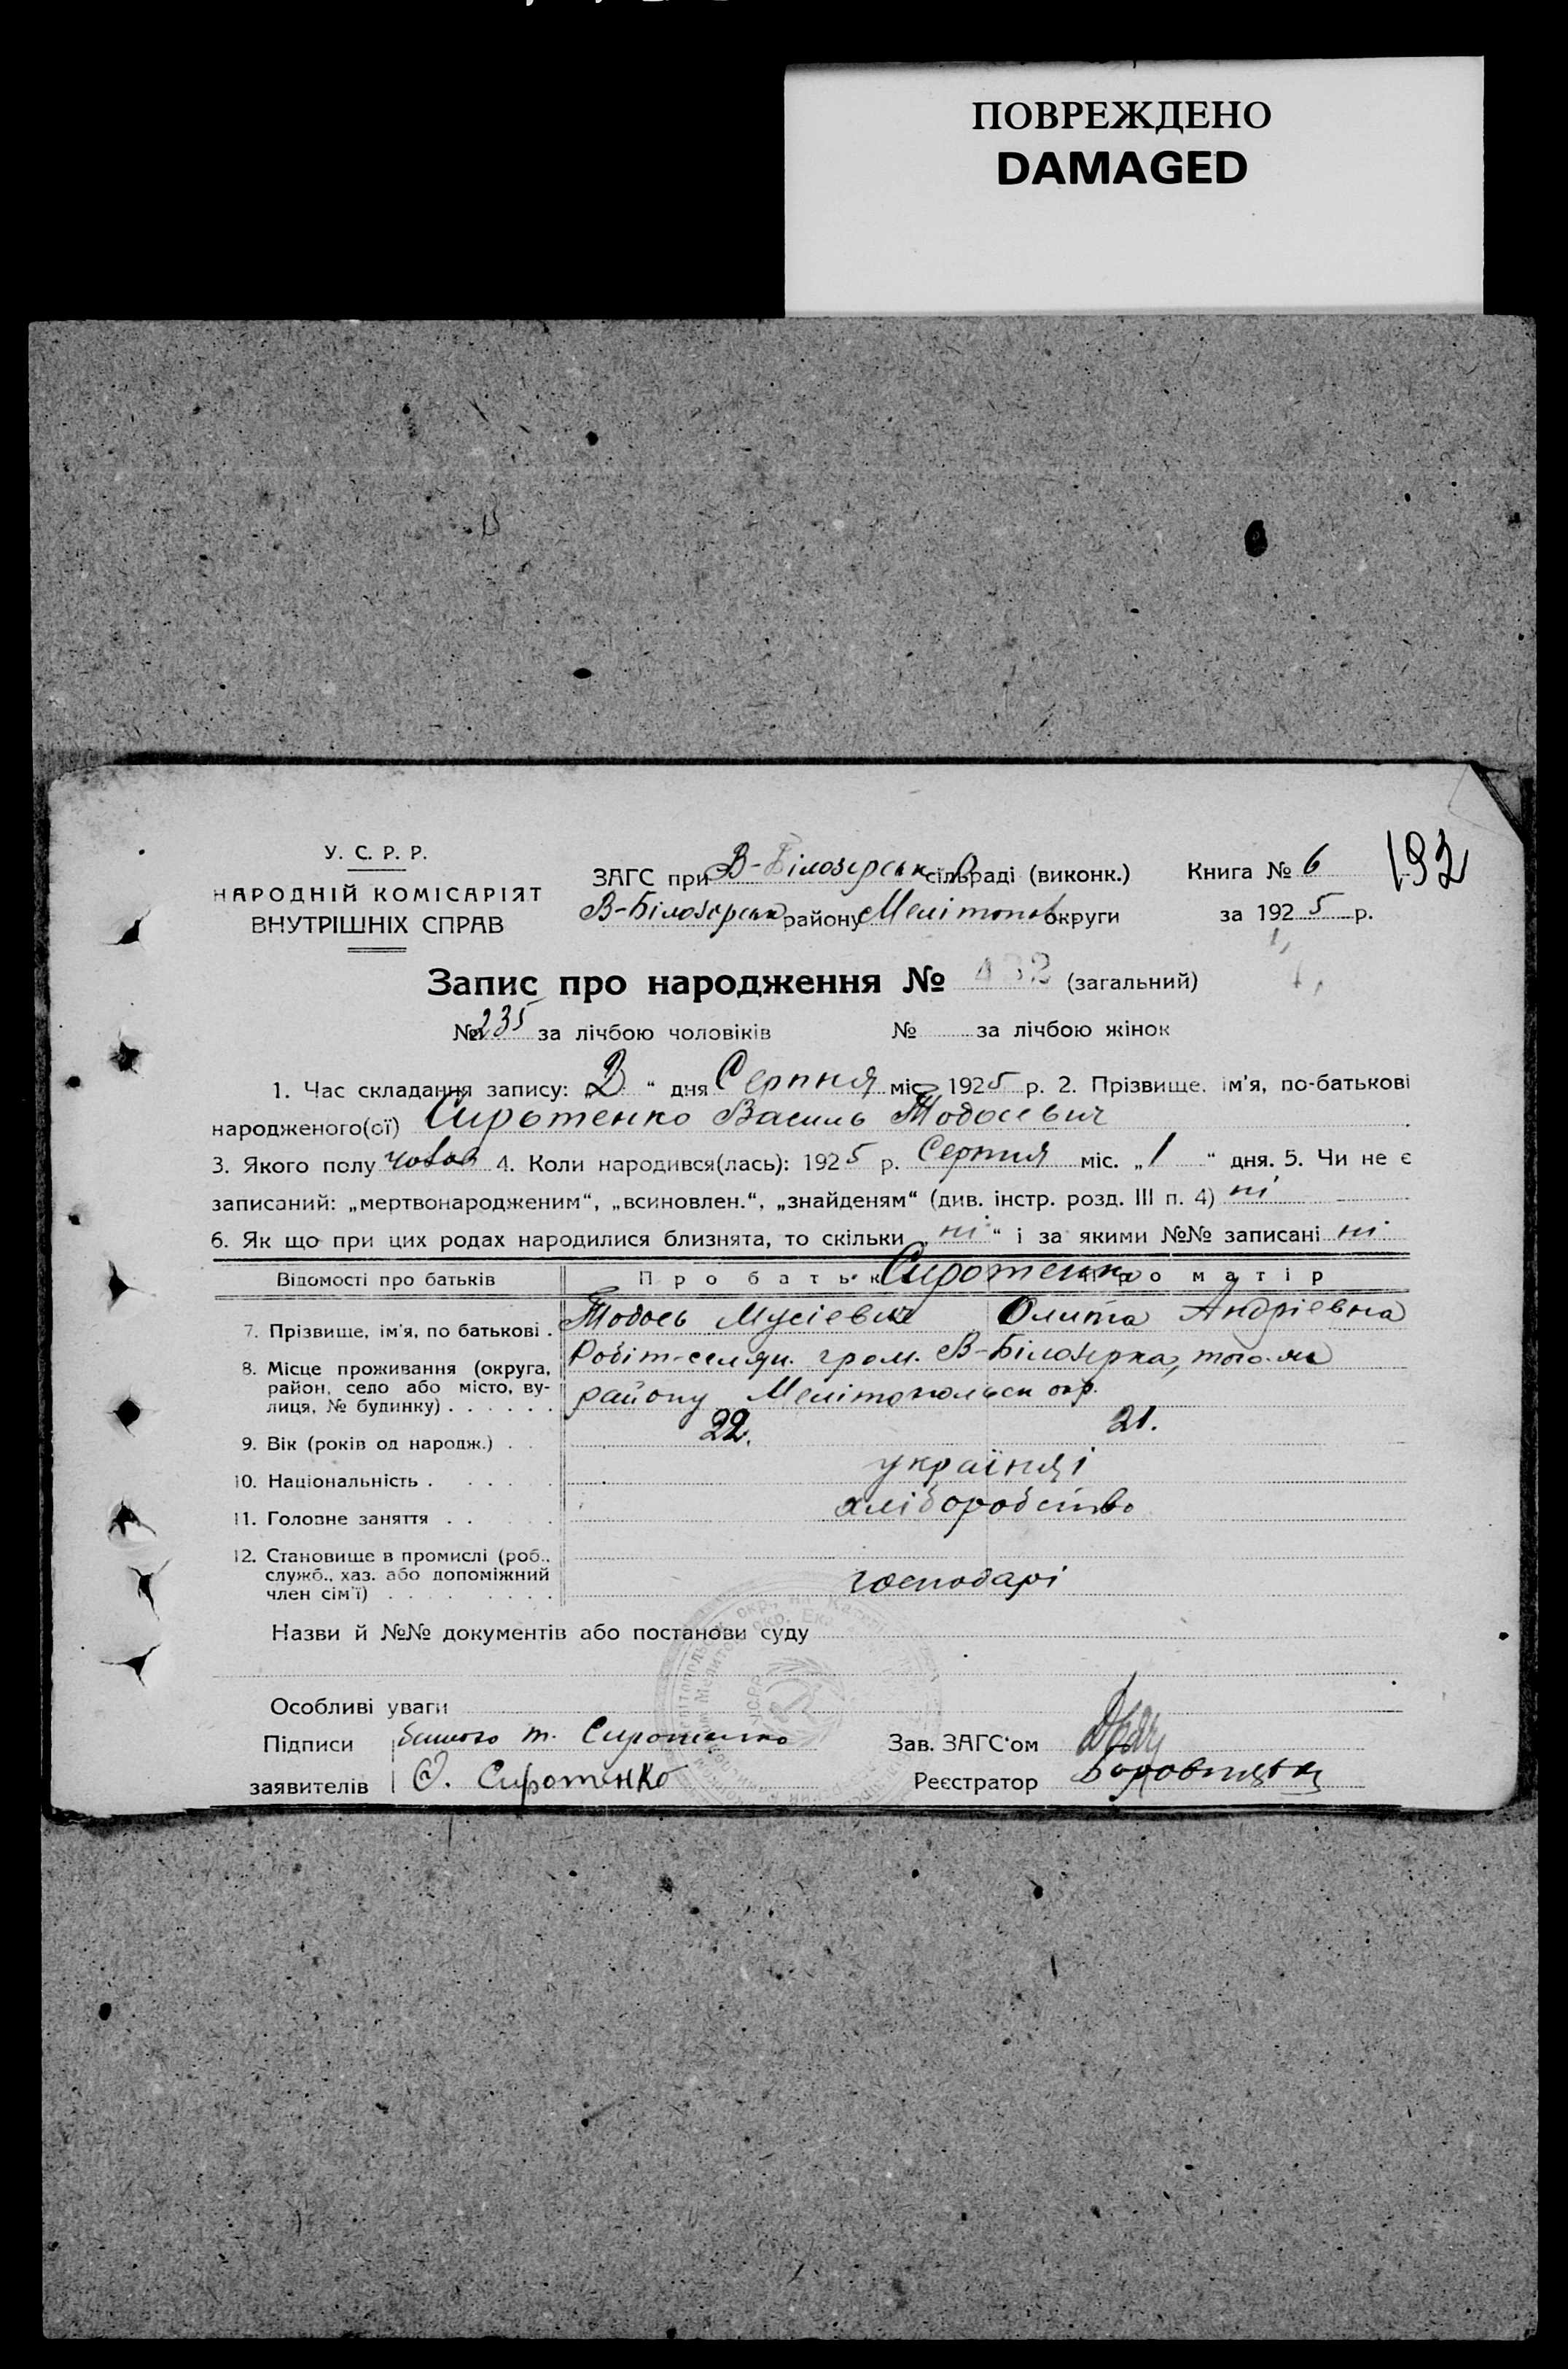 ПОВРЕЖДЕНО
DAMAGED
У. С. Р. Р.
НАРОДНІЙ КОМІСАРІЯТ
ВНУТРІШНІХ СПРАВ
ЗАГС при В-Білозерськ сільраді (виконк.)
В-Білозерськ району Мелітоп округи
Книга № 6
192
за 1925 р.
Запис про народження № 432 (загальний)
№ 235 за лічбою чоловіків № за лічбою жінок
1. Час складання запису: „2“ дня Серпня міс. 1925 р. 2. Прізвище, ім'я, по-батькові
народженого(ої) Сиротенко Василь Тодосевич
3. Якого полу чолов 4. Коли народився(лась): 1925 р. Серпня міс. „1“ дня. 5. Чи не є
записаний: „мертвонародженим“, „всиновлен.“, „знайденям“ (див. інстр. розд. III п. 4) ні
6. Як що при цих родах народилися близнята, то скільки „ні“ і за якими №№ записані ні
Відомості про батьків Про батька Сиротенко Про матір
7. Прізвище, ім'я, по батькові . Тодось Мусієвич Олита Андрієвна
8. Місце проживання (округа, район, село або місто, вулиця, № будинку) . . . . . .
Робіт-селян. гром. В-Білозерка, того-ж
району Мелітопольськ окр.
9. Вік (років од народж.) . . 22. 21.
10. Національність . . . . . українці
11. Головне заняття . . . . . хліборобство
12. Становище в промислі (роб., служб., хаз. або допоміжний член сім'ї) . . . . . . . . господарі
Назви й №№ документів або постанови суду
Особливі уваги
Підписи Т. Сиротенко
заявителів О. Сиротенко
Зав. ЗАГС'ом
Реєстратор